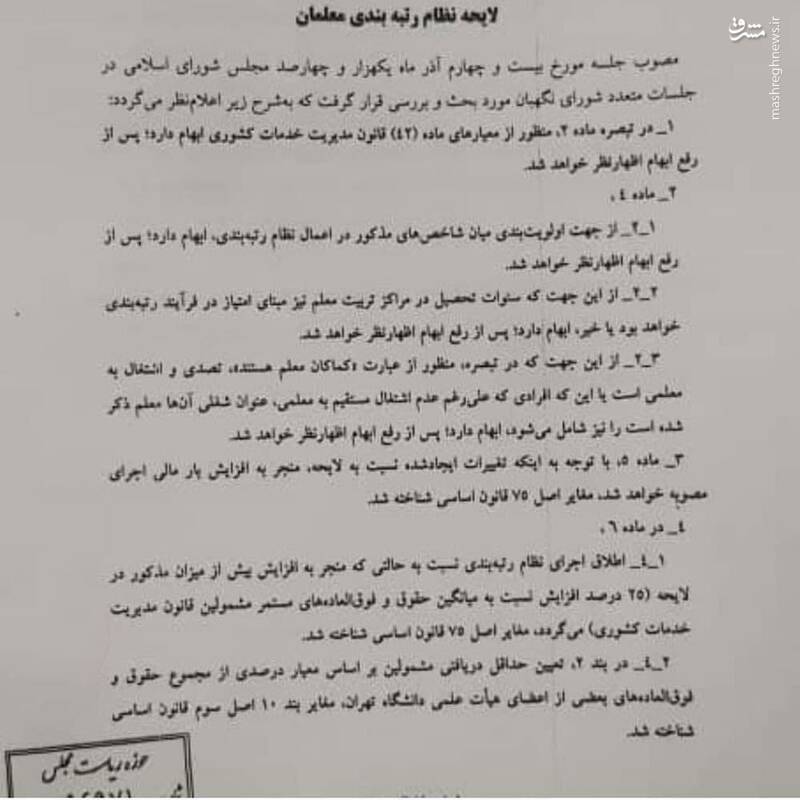 لایحه نظام رتبه بندی معلمان
مشرق
mashreghnews.ir
مصوب جلسه مورخ بیست و چهارم آذر ماه یکهزار و چهارصد مجلس شورای اسلامی در
جلسات متعدد شورای نگهبان مورد بحث و بررسی قرار گرفت که به‌شرح زیر اعلام‌نظر می‌گردد:
۱_ در تبصره ماده ۲، منظور از معیارهای ماده (۴۲) قانون مدیریت خدمات کشوری ابهام دارد؛ پس از
رفع ابهام اظهارنظر خواهد شد.
۲_ ماده ۴ ،
۲_۱_ از جهت اولویت‌بندی میان شاخص‌های مذکور در اعمال نظام رتبه‌بندی، ابهام دارد؛ پس از
رفع ابهام اظهارنظر خواهد شد.
۲_۲_ از این جهت که سنوات تحصیل در مراکز تربیت معلم نیز مبنای امتیاز در فرآیند رتبه‌بندی
خواهد بود یا خیر، ابهام دارد؛ پس از رفع ابهام اظهارنظر خواهد شد.
۲_۳_ از این جهت که در تبصره، منظور از عبارت «کماکان معلم هستند»، تصدی و اشتغال به
معلمی است یا این که افرادی که علی‌رغم عدم اشتغال مستقیم به معلمی، عنوان شغلی آن‌ها معلم ذکر
شده است را نیز شامل می‌شود، ابهام دارد؛ پس از رفع ابهام اظهارنظر خواهد شد.
۳_ ماده ۵، با توجه به اینکه تغییرات ایجادشده نسبت به لایحه، منجر به افزایش بار مالی اجرای
مصوبه خواهد شد، مغایر اصل ۷۵ قانون اساسی شناخته شد.
۴_ در ماده ۶ ،
۴_۱_ اطلاق اجرای نظام رتبه‌بندی نسبت به حالتی که منجر به افزایش بیش از میزان مذکور در
لایحه (۲۵ درصد افزایش نسبت به میانگین حقوق و فوق‌العاده‌های مستمر مشمولین قانون مدیریت
خدمات کشوری) می‌گردد، مغایر اصل ۷۵ قانون اساسی شناخته شد.
۴_۲_ در بند ۲، تعیین حداقل دریافتی مشمولین بر اساس معیار درصدی از مجموع حقوق و
فوق‌العاده‌های بعضی از اعضای هیأت علمی دانشگاه تهران، مغایر بند ۱۰ اصل سوم قانون اساسی
شناخته شد.
حوزه ریاست مجلس